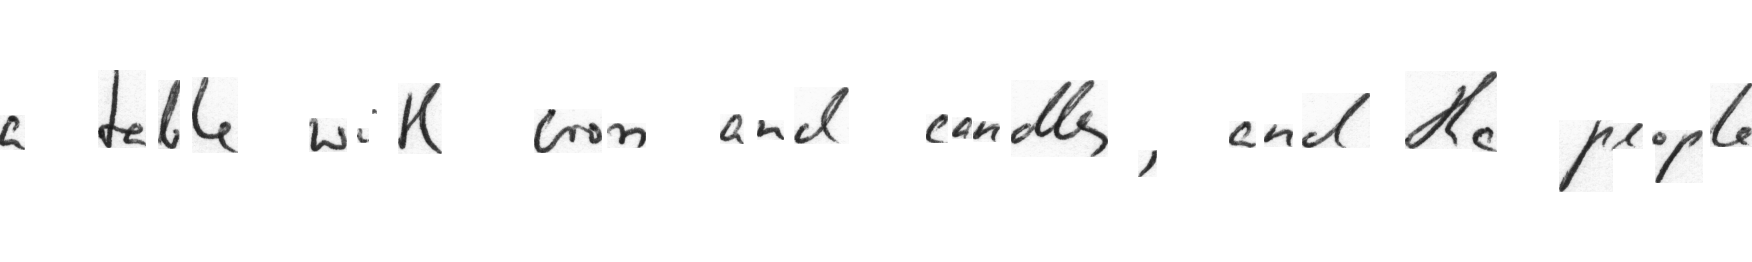 a table with cross and candles, and the people